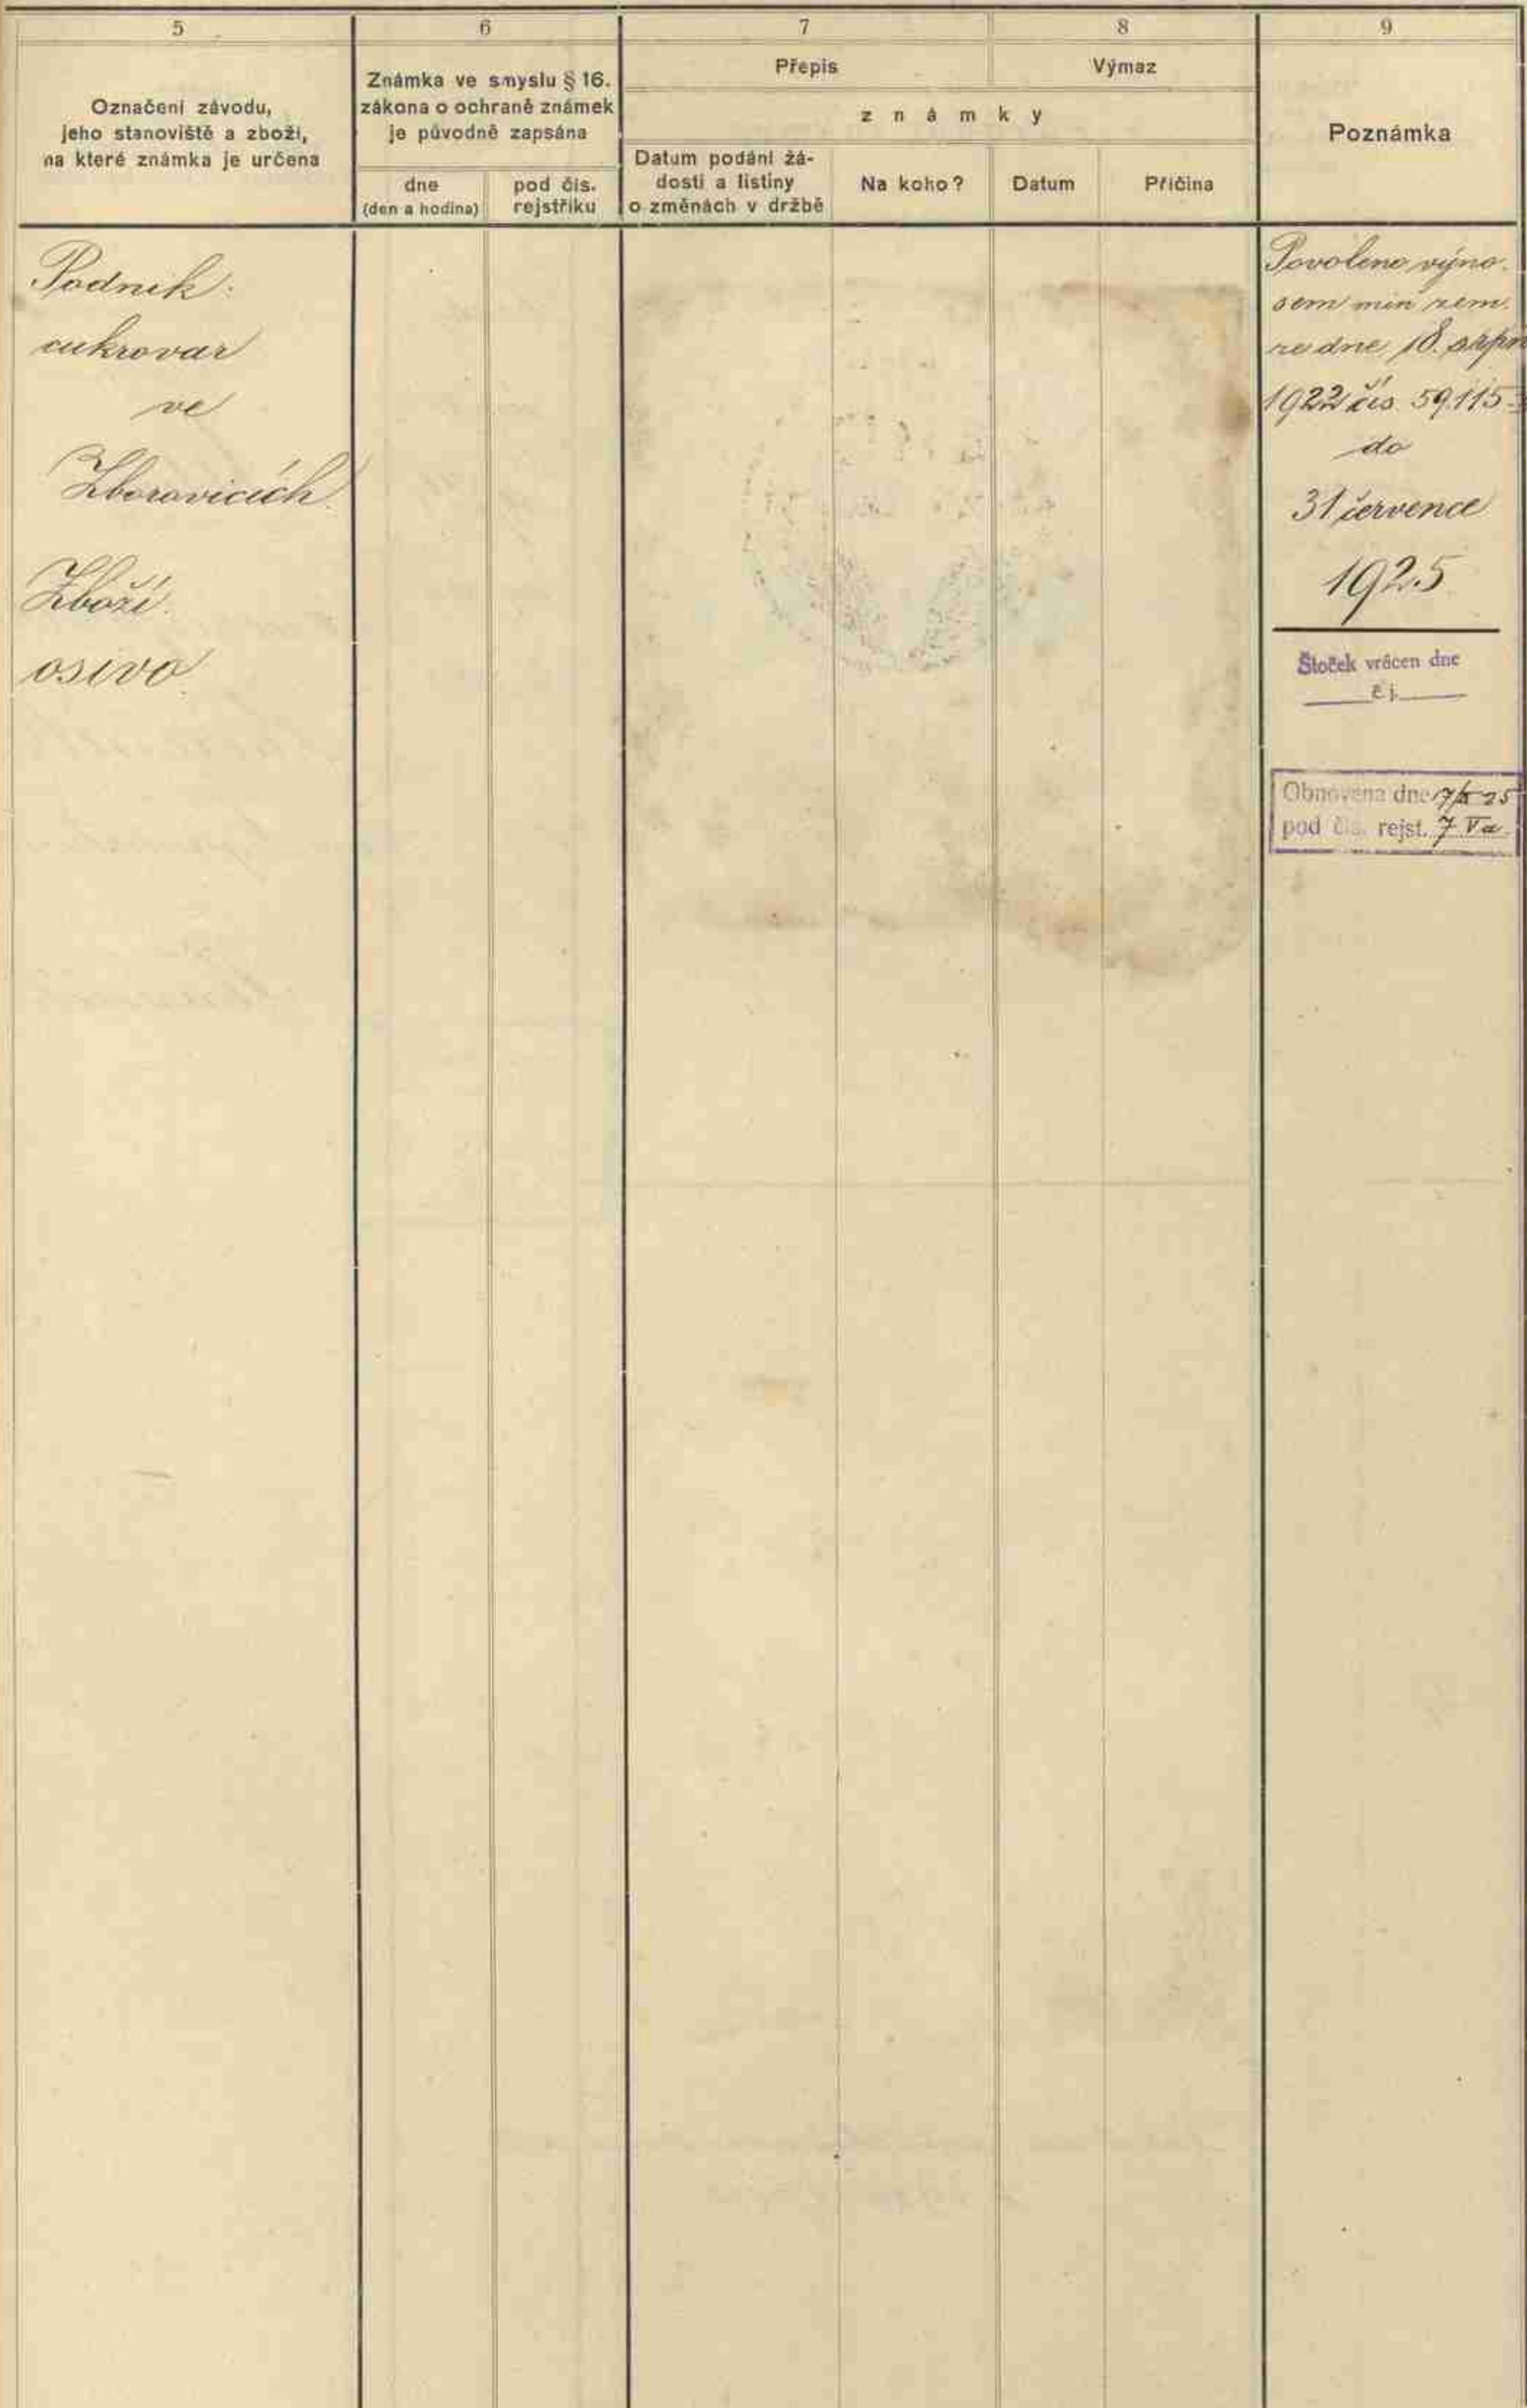 5
6
7
8
9
Označení závodu,
jeho stanoviště a zboží,
na které známka je určena
Známka ve smyslu § 16.
zákona o ochraně známek
je původně zapsána
dne
(den a hodina)
pod čis.
rejstříku
Přepis
Výmaz
známky
Datum podání žá-
dosti a listiny
o změnách v držbě
Na koho?
Datum
Příčina
Poznámka
Podnik:
cukrovar
ve
Zborovicích.
Zboží:
osivo
Povoleno výno-
sem min zem.
ze dne 18. srpn
1922 čís. 59.115
do
31 července
1925
Štoček vrácen dne
čj.
Obnovena dne 25
pod čís. rejst. 7 Va